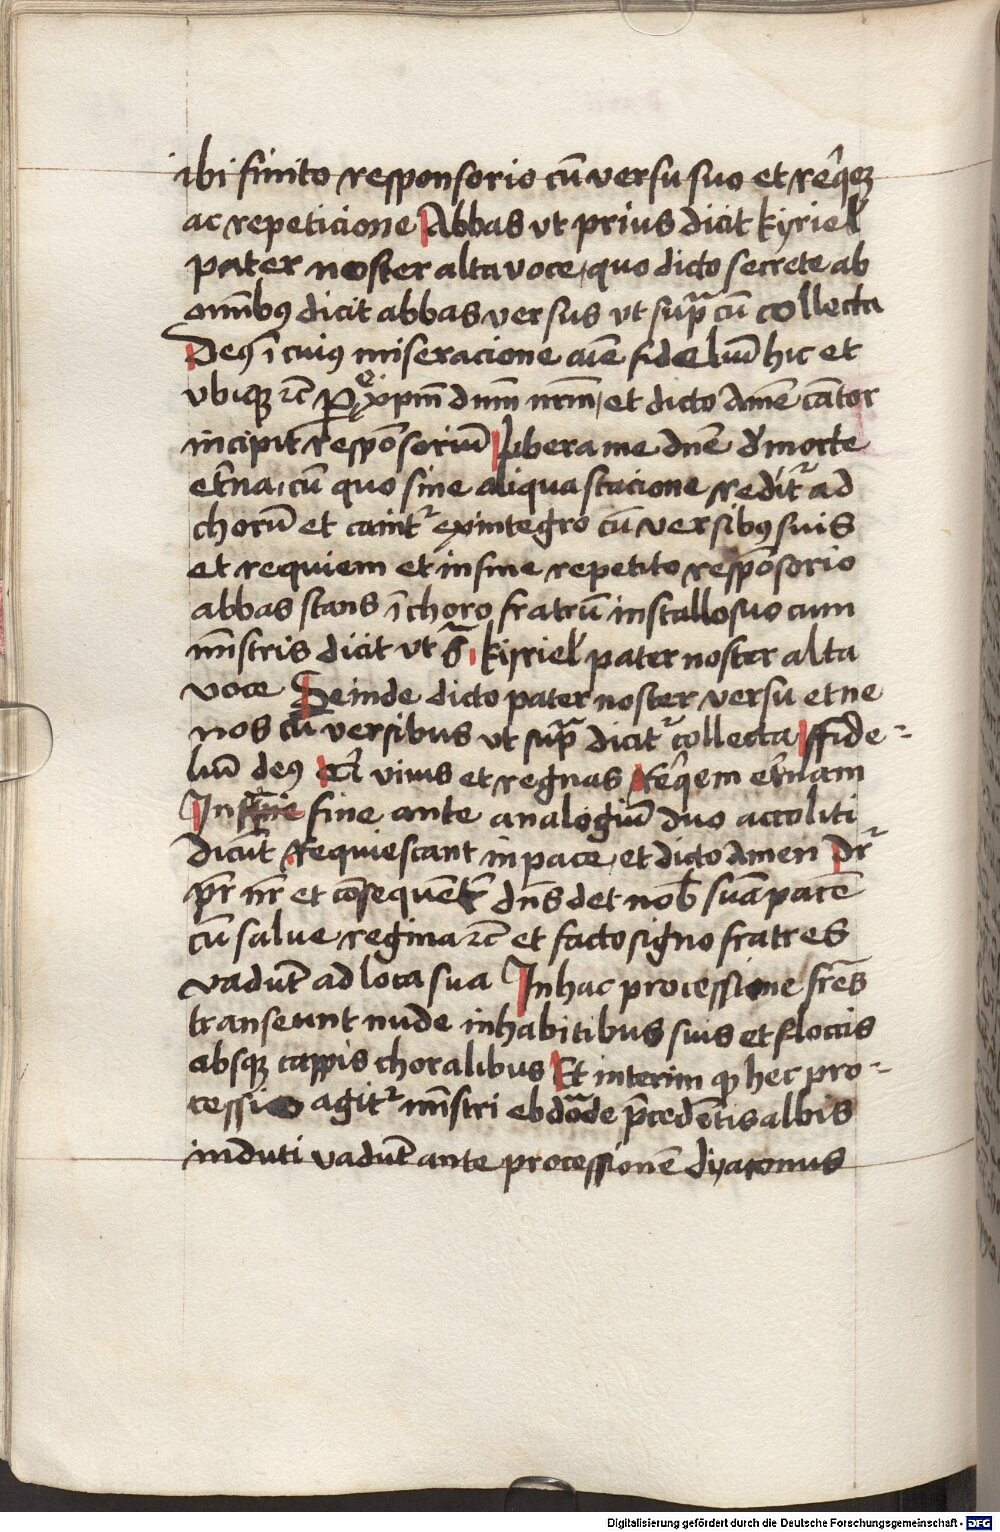 ibi finito responsorio cū versu suo et req̄ez
ac repeticione Abbas vt prius dicit kyriel̄
pater noster alta voce, quo dicto secrete ab
om̄ibꝰ dicit abbas versus vt supͣ cū collecta
Deꝰ ī cuiꝰ miseracione aīe fideliū hic et
vbiqꝫ ⁊c̄ ꝑ xp̄m dn̄m nr̄m, et dicto Amē cātor
incipit respōsoriū Libera me dn̄e d̄ morte
et̄na, cū quo sine aliqua stacione reditᷣ ad
chorū et canitᷣ ex integro cū versibꝰ suis
et requiem et in fine repetito respōsorio
abbas stans ī choro fratrū in stallo suo cum
mīstris dicit vt sͣ kyriel̄ pater noster alta
voce Deinde dicto pater noster versu et ne
nos cū versibus vt supͣ dicitᷣ collecta ffide-
liū deꝰ vivis et regnas Req̄em et̄nam
In fine ante analogiū duo accoliti
dicūt Requiescant in pace, et dicto Amen Dr̄
pr̄ nr̄ et cōsequēt̄ dn̄s det nob̄ suā pacē
cū salve regina ⁊c̄ et facto signo fratres
vadūt ad loca sua In hac processione fr̄es
transeunt nude in habitibus suis et floccis
absqꝫ cappis choralibus Et interim qͦ hec pro-
cessio agitᷣ mīstri ebdōde p̄cedētis albis
induti vadūt ante processionē dyaconus
Digitalisierung gefördert durch die Deutsche Forschungsgemeinschaft - DFG